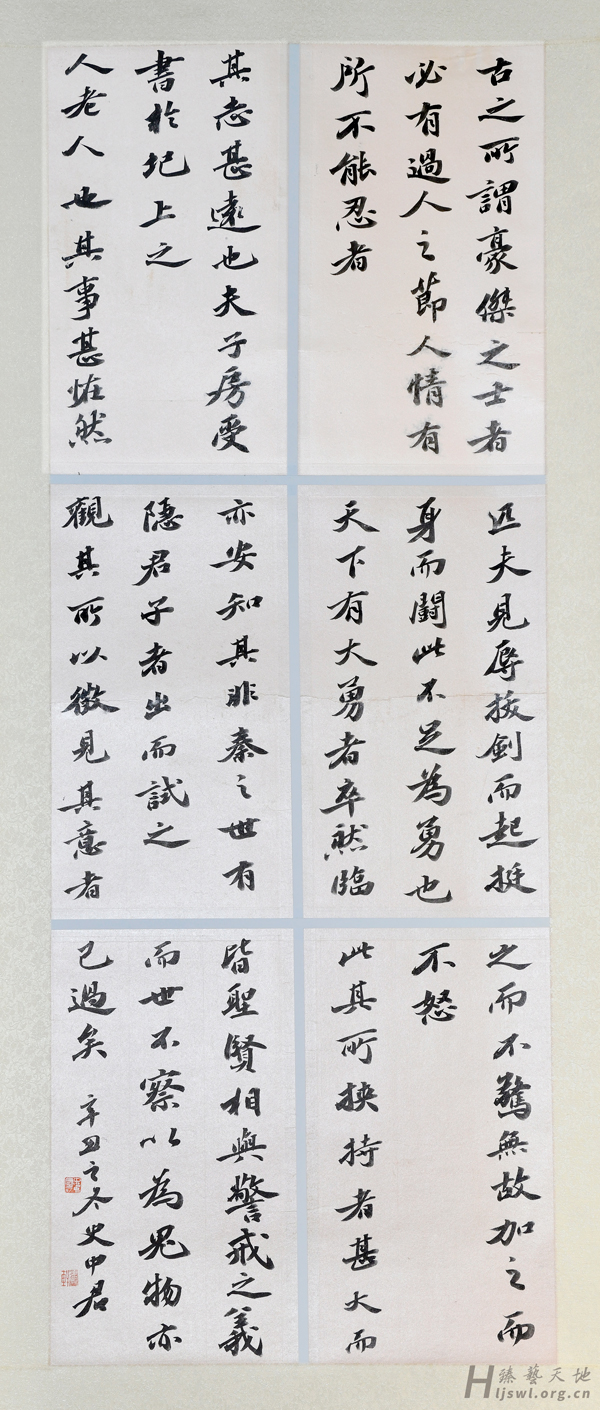 古之所謂豪傑之士者
必有過人之節人情有
所不能忍者
匹夫見辱拔劍而起挺
身而鬭此不足為勇也
天下有大勇者卒然臨
之而不驚無故加之而
不怒
此其所挾持者甚大而
其志甚遠也夫子房受
書於圯上之
人老人也其事甚恠然
亦安知其非秦之世有
隱君子者出而試之
觀其所以微見其意者
皆聖賢相與警戒之義
而世不察以為鬼物亦
已過矣 辛丑之冬史中君
臻藝天地
Hljswl.org.cn